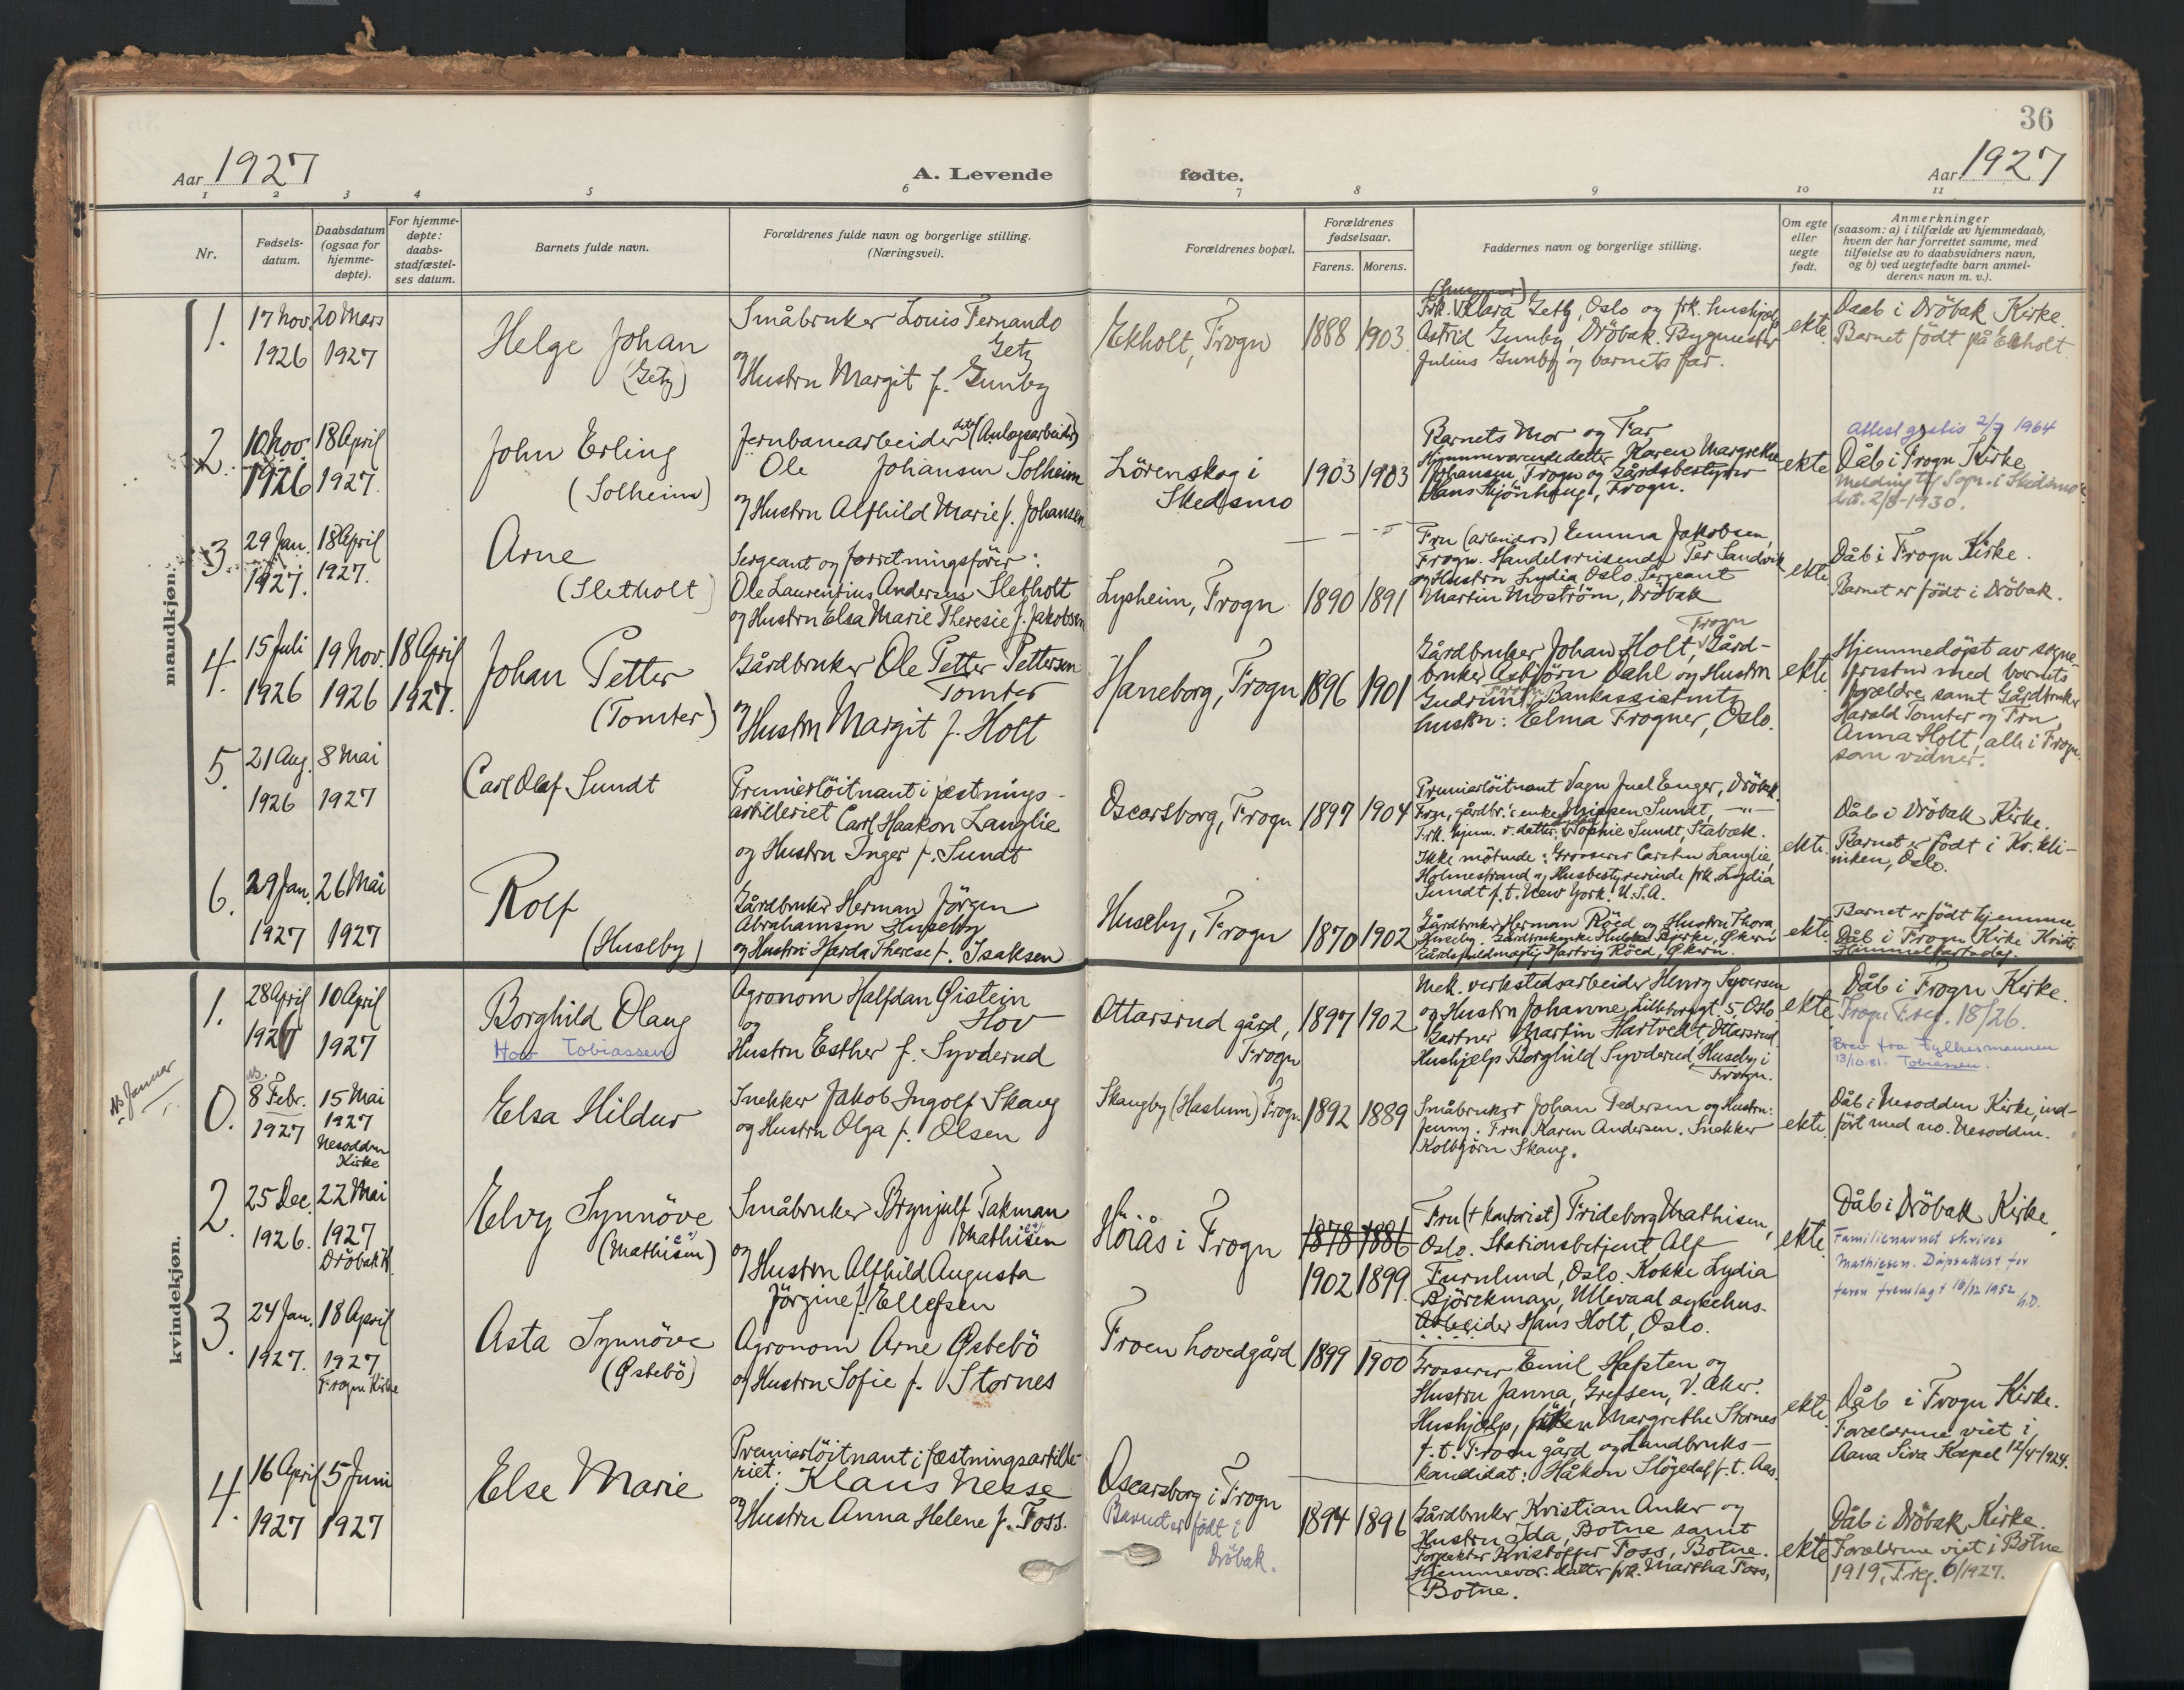 36
Aar 1927
A. Levende
fødte.
Aar 1927
1 2 3 4 5 6 7 8 9 10 11
Nr.
Fødsels-
datum.
Daabsdatum
(ogsaa for
hjemme-
døpte).
For hjemme-
døpte:
daabs-
stadfæstel-
ses datum.
Barnets fulde navn.
Forældrenes fulde navn og borgerlige stilling.
(Næringsvei).
Forældrenes bopæl.
Forældrenes
fødselsaar.
Farens. Morens.
Faddernes navn og borgerlige stilling.
Om egte
eller
uegte
født.
Anmerkninger
(saasom: a) i tilfælde av hjemmedaab,
hvem der har forrettet samme, med
tilføielse av to daabsvidners navn,
og b) ved uegtefødte barn anmel-
derens navn m. v.).
mandkjøn.
1.
17 Nov.
1926
20 Mars
1927
Helge Johan
(Getz)
Småbruker Louis Fernando
Getz
og Hustru Margit f. Gunby
Ekholt, Frogn
1888
1903
Frk. Klara Getz, Oslo og frk. hushjelp
Astrid Gunby, Dröbak. Bygmester
Julius Gunby og barnets far.
ekte.
Daab i Dröbak Kirke.
Barnet födt på Ekholt
2.
10 Nov.
1926
18 April
1927.
John Erling
(Solheim)
Jernbanearbeider (Anlegsarbeider)
Ole Johansen Solheim
og Hustru Alfhild Marie f. Johansen
Lörenskog i
Skedsmo
1903
1903
Barnets Mor og Far
Hjemmeværende datter Karen Margrethe
Johansen, Frogn og Gårdsbestyrer
Hans Kjönhaug, Frogn.
ekte
Attest gratis 2/7 1964
Dåb i Frogn Kirke
Melding til Sogn. i Skedsmo
dat. 2/8-1930.
3.
29 Jan.
1927.
18 April
1927.
Arne
(Sletholt)
Sergeant og forretningsförer:
Ole Laurentius Andersen Sletholt
og Hustru Elsa Marie Theresie f. Jakobsen
Lysheim, Frogn
1890
1891
Fru (arbeiders) Emma Jakobsen,
Frogn. Handelsreisende Per Sandvik
og Hustru Lydia, Oslo. Sergeant
Martin Moström, Dröbak
ekte
Dåb i Frogn Kirke.
Barnet er födt i Dröbak.
4.
15 Juli
1926
19 Nov.
1926
18 April
1927.
Johan Petter
(Tomter)
Gårdbruker Ole Petter Pettersen
Tomter
og Hustru Margit f. Holt
Haneborg, Frogn
1896
1901
Frogn
Gårdbruker Johan Holt, Gård-
bruker Asbjörn Dahl og Hustru
Gudrun, Frogn. Bankassistents
hustru: Elma Frogner, Oslo.
ekte
Hjemmedöpt av sogne-
presten med barnets
forældre samt Gårdbruker
Harald Tomter og Fru
Anna Holt, alle i Frogn
som vidner.
5.
21 Aug.
1926
8 Mai
1927
Carl Olaf Sundt
Premierlöitnant i festnings-
artilleriet Carl Haakon Langlie
og Hustru Inger f. Sundt
Oscarsborg, Frogn
1897
1904
Premierlöitnant Vagn Juel Enger, Dröbak.
Fru, gårdbr.'s enke Sundt, —"—
Frk. hjem. v. datter. Sophie Sundt, Stabæk.
Ikke mötende: Grosserer Carsten Langlie,
Holmestrand og Husbestyrerinde frk. Lydia
Sundt p.t. New York. U.S.A.
ekte.
Dåb i Dröbak Kirke.
Barnet er födt i Kv. kli-
niken, Oslo.
6.
29 Jan.
1927
26 Mai
1927
Rolf
(Huseby)
Gårdbruker Herman Jörgen
Abrahamsen Huseby
og Hustru Harda Therese f. Isaksen
Huseby, Frogn
1870
1902
Gårdbruker Herman Röed og Hustru Thora,
Huseby. Gårdbrukerenke Hulda Bjerke, Økern
Gårdsfuldmægtig Hartvig Röed, Økern.
ekte.
Barnet er födt hjemme
Dåb i Frogn Kirke Kristi
Himmelfartsdag.
kvindekjøn.
1.
28 April
1926
10 April
1927
Borghild Olaug
Hov Tobiassen
Agronom Halfdan Øistein
Hov
og Hustru Esther f. Syvderud
Ottarsrud gård,
Frogn
1897
1902
Mek. verkstedsarbeider Henry Syversen
og Hustru Johanne, Lilleborggt. 5, Oslo
Gartner Martin Hartvedt, Ottarsrud
Hushjelp Borghild Syvderud, Huseby i
Frogn.
ekte.
Dåb i Frogn Kirke.
Frogn F.reg. 18/26.
Brev fra Fylkesmannen
13/10.81. Tobiassen.
NB Januar
0.
NB
8 Febr.
1927
15 Mai
1927
Nesodden
Kirke
Elsa Hildur
Snekker Jakob Ingolf Skaug
og Hustru Olga f. Olsen
Skaugby (Haslum) Frogn
1892
1889
Småbruker Johan Pedersen og Hustru:
Jenny. Fru Karen Andersen. Snekker
Kolbjörn Skaug.
ekte.
Dåb i Nesodden Kirke, ind-
fört med no. Nesodden.
2.
25 Dec.
1926.
22 Mai
1927
Dröbak K.
Elvy Synnöve
(Mathisen)
Småbruker Brynjulf Takman
Mathisen
og Hustru Alfhild Augusta
Jörgine f. Ellefsen
Höiås i Frogn
1878 1886
1902
1899
Fru (+ kontorist) Frideborg Mathisen,
Oslo. Stationsbetjent Alf
Furulund, Oslo. Kokke Lydia
Björckman, Ullevaal sykehus.
Arbeider Hans Holt, Oslo.
ekte.
Dåb i Dröbak Kirke.
Familienavnet skrives
Mathiesen. Dåpsattest for
faren fremlagt 18/12 1952
3.
24 Jan.
1927.
18 April
1927
Frogn Kirke
Asta Synnöve
(Østebö)
Agronom Arne Østebö
og Hustru Sofie f. Stornes
Froen hovedgård
1899
1900
Grosserer Emil Hafsten og
Hustru Janna, Grefsen, V. Aker.
Hushjelp, Margrethe Stornes
p.t. Froen gård og Landbruks-
kandidat: Håkon Slögedal p.t. Aas.
ekte.
Dåb i Frogn Kirke.
Forældrene viet i
Aana Sira Kapel 12/4-1924.
4.
16 April
1927
5 Juni
1927
Else Marie
Premierlöitnant i fæstningsartille-
riet: Klaus Nesse
og Hustru Anna Helene f. Foss.
Oscarsborg i Frogn
Barnet er födt i
Dröbak.
1894
1896
Gårdbruker Kristian Anker og
Hustru Ida, Botne samt
Forpakter Kristoffer Foss, Botne.
Hjemmevær. datter frk. Martha Foss,
Botne.
ekte
Dåb i Dröbak Kirke.
Forældrene viet i Botne
1919, F.reg. 6/1927.